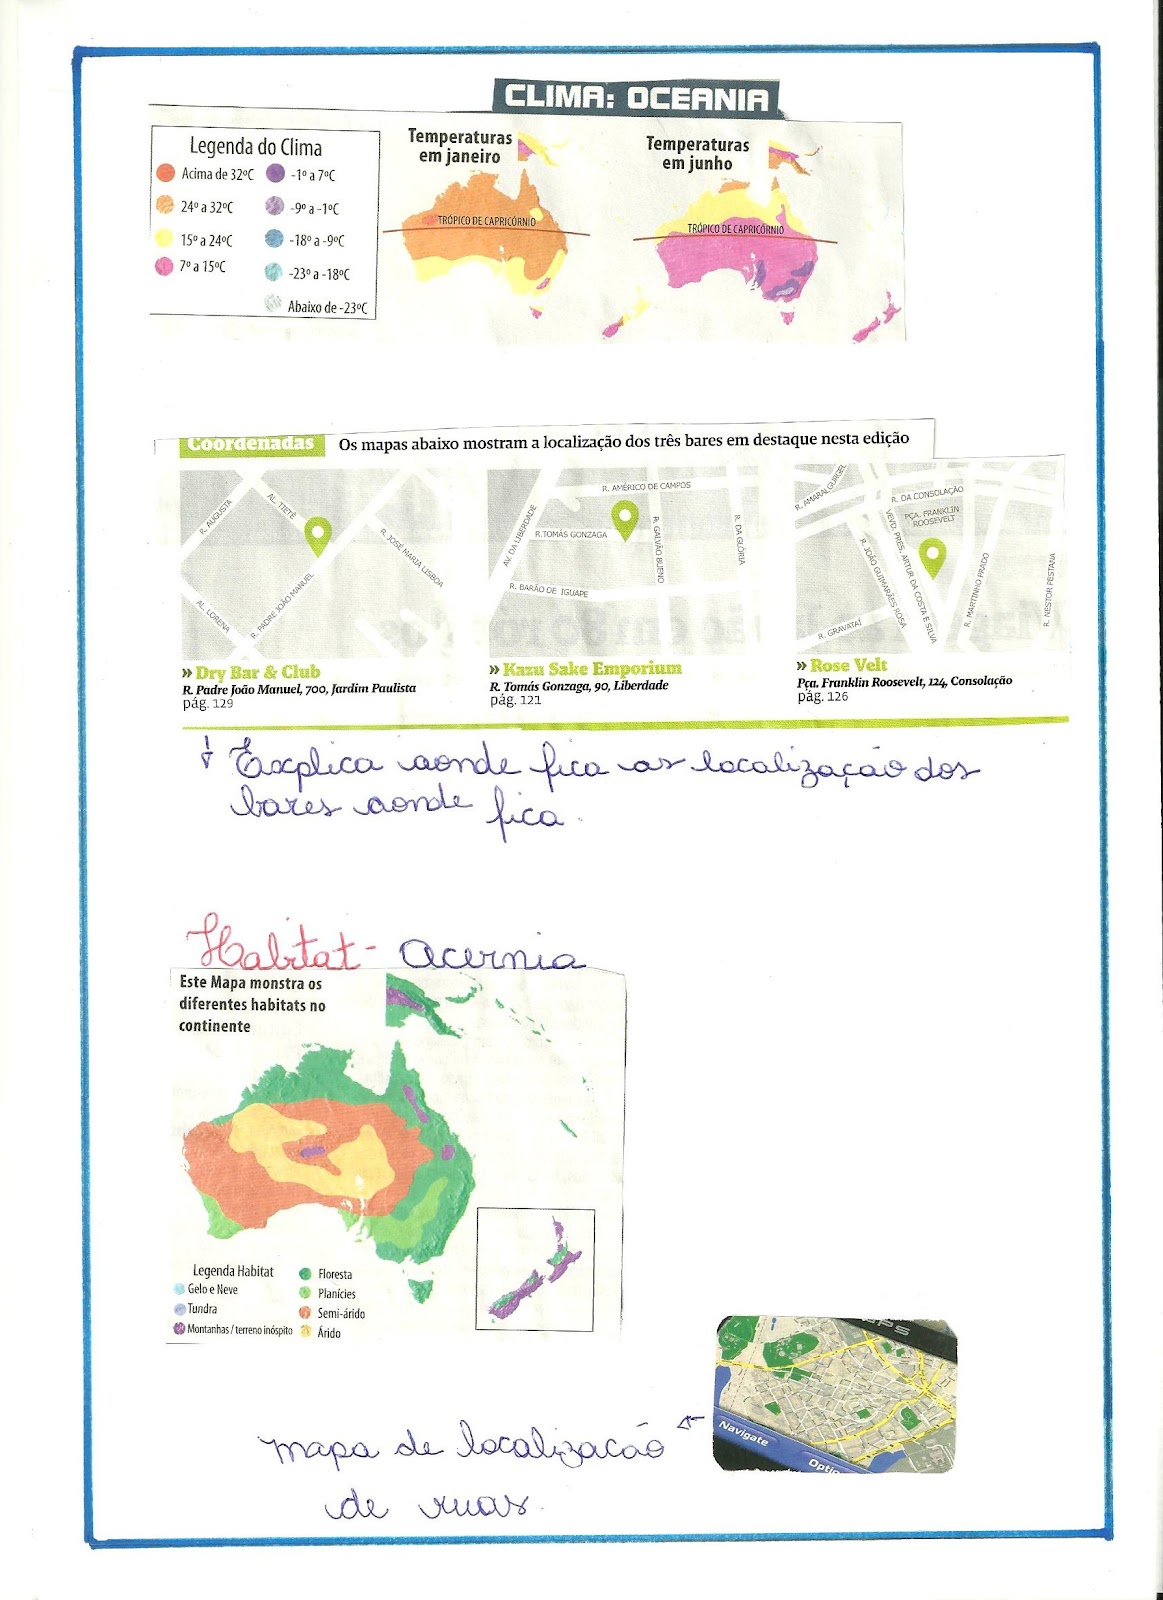 CLIMA: OCEANIA
Legenda do Clima
Acima de 32ºC
24º a 32ºC
15º a 24ºC
7º a 15ºC
-1º a 7ºC
-9º a -1ºC
-18º a -9ºC
-23º a -18ºC
Abaixo de -23ºC
Temperaturas
em janeiro
TRÓPICO DE CAPRICÓRNIO
Temperaturas
em junho
TRÓPICO DE CAPRICÓRNIO
Coordenadas
Os mapas abaixo mostram a localização dos três bares em destaque nesta edição
R. AUGUSTA
AL. TIETÊ
R. JOSÉ MARIA LISBOA
AL. LORENA
R. PADRE JOÃO MANUEL
» Dry Bar & Club
R. Padre João Manuel, 700, Jardim Paulista
pág. 129
R. AMÉRICO DE CAMPOS
AV. DA LIBERDADE
R.TOMÁS GONZAGA
R. GALVÃO BUENO
R. DA GLÓRIA
R. BARÃO DE IGUAPE
» Kazu Sake Emporium
R. Tomás Gonzaga, 90, Liberdade
pág. 121
R. AMARAL GURGEL
R. DA CONSOLAÇÃO
PÇA. FRANKLIN
ROOSEVELT
VEVD. PRES. ARTUR DA COSTA E SILVA
R. JOÃO GUIMARÃES ROSA
R. MARTINHO PRADO
R. NESTOR PESTANA
R. GRAVATAÍ
» Rose Velt
Pça. Franklin Roosevelt, 124, Consolação
pág. 126
Explica aonde fica as localização dos
bares aonde fica.
Habitat - Acernia
Este Mapa monstra os
diferentes habitats no
continente
Legenda Habitat
Gelo e Neve
Tundra
Montanhas / terreno inóspito
Floresta
Planícies
Semi-árido
Árido
GPS
Navigate
Optio
mapa de localizacão
de ruas.